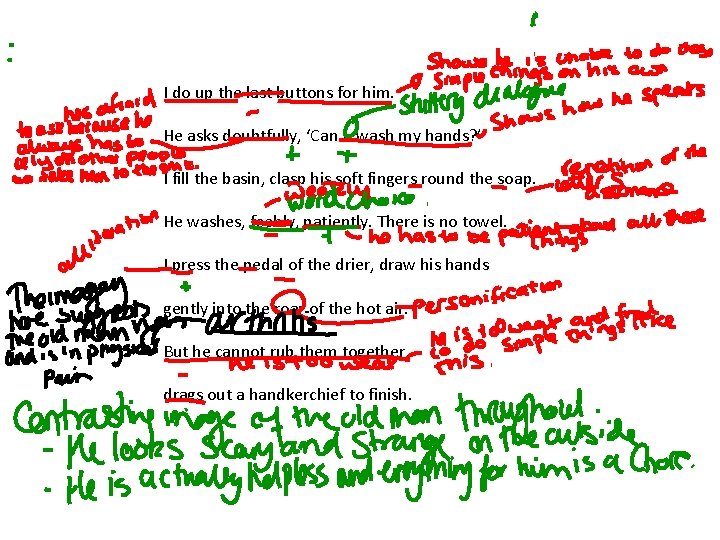 Shows he is unable to do
simple things on his own
I do up the last buttons for him.
Stuttery dialogue
Shows how he speaks
hes afraid
to ask because he
always has to
rely on other people
to take him to the
He asks doubtfully, 'Can I wash my hands?'
I fill the basin, clasp his soft fingers round the soap.
repetition of the
assonance
weakly
word choice
He washes, feebly, patiently. There is no towel.
he has to be patient about all these
things
alliteration
I press the pedal of the drier, draw his hands
gently into the roar of the hot air.
Personification
The imagery
here suggests
The old man
and is in physical
Pain
arthritis
But he cannot rub them together,
he is too weak
He is too weak and frail
to do simple things like
this.
drags out a handkerchief to finish.
Contrasting image of the old man throughout.
- He looks Scary and Strange on the outside
- He is actually helpless and everything for him is a Chore.